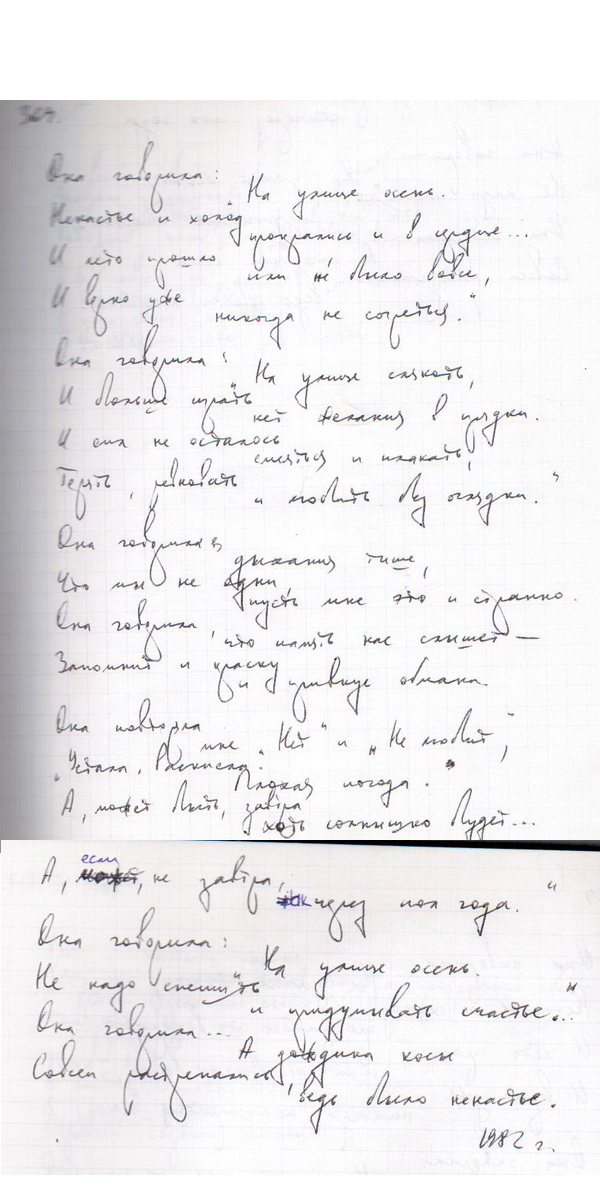 Она говорила:
"На улице осень.
Ненастье и холод
прокрались и в сердце...
И лето прошло
или не было вовсе,
И верно уже
никогда не согреться."
Она говорила:
"На улице слякоть,
И больше играть
нет желания в прядки.
И сил не осталось
смеяться и плакать,
Терять, ревновать
и любить без оглядки."
Она говорила
дыхания тише,
Что мы не одни,
пусть мне это и странно.
Она говорила,
что память нас слышит —
Запомнит и краску
и привкус обмана.
Она повторяла
мне "Нет" и "Не любит",
"Устала. Раскисла.
Плохая погода.
А, может быть, завтра
хоть солнышко будет...
А, если не завтра,
так через пол года."
Она говорила:
"На улице осень.
Не надо спешить
и придумывать счастье..."
Она говорила...
А дождика косы
Совсем растрепались,
ведь было ненастье.
1982 г.